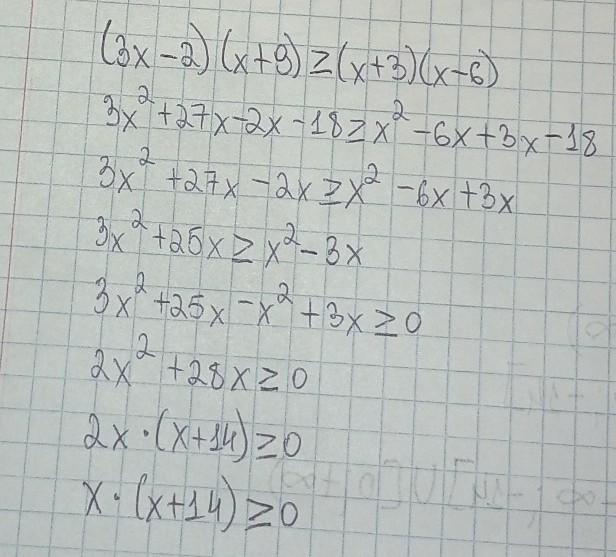 (3x-2)(x+9)≥(x+3)(x-6)
3x²+27x-2x-18≥x²-6x+3x-18
3x²+27x-2x≥x²-6x+3x
3x²+25x≥x²-3x
3x²+25x-x²+3x≥0
2x²+28x≥0
2x·(x+14)≥0
x·(x+14)≥0